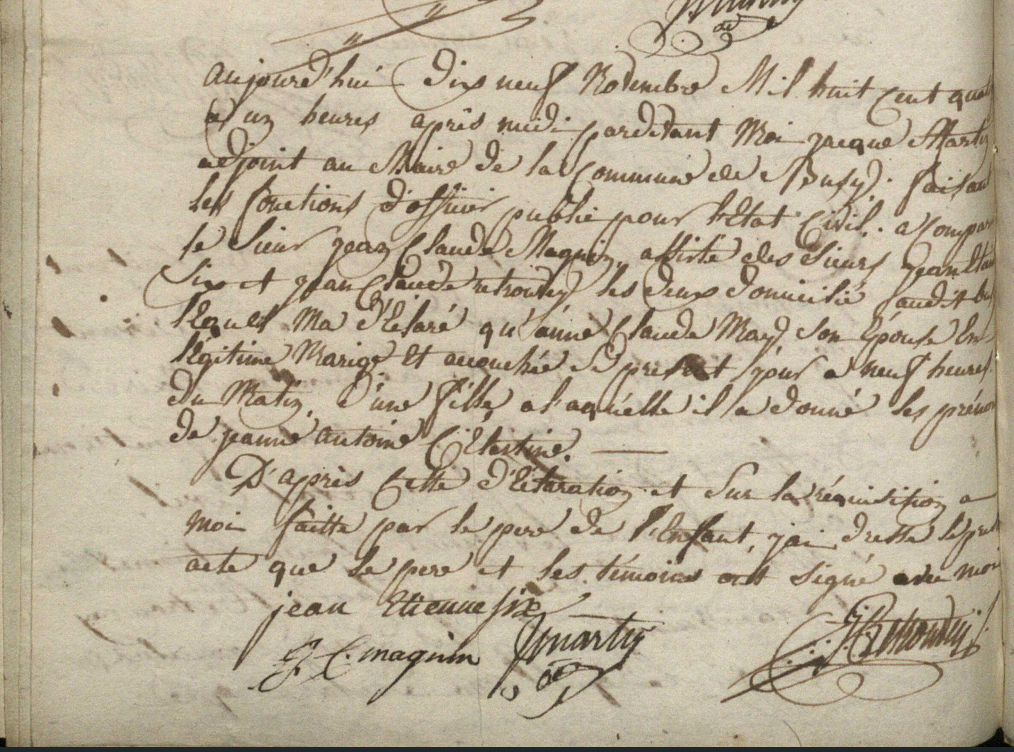 aujourd'hui dix neuf Novembre Mil huit Cent quat
à un heures après midi pardevant Moi jacque Martin
adjoint au Maire de la Commune de Busy. faisant
les fonctions d'officier public pour l'Etat Civil. a Compar
le Sieur jean Claude Maguin, assisté des Sieurs jean Etien
Six et jean Claude retrouvey les deux domicilié audit bus
lequel Ma d'Eclaré qu'anne Claude May Son Épouse En
légitime Mariage Et acouchée de présent jour a neuf heures
du Matin d'une fille a laquelle il a donné les prénom
de jeanne antoine Célestine.
D'après Cette d'Eclaration et Sur la réquisition a
moi faitte par le pere de l'Enfant, j'ai dressé le pre
acte que le pere et les témoins ont signé avec moi
jean Etienne six
J. C. maguin JMartin J C Rethouvey
adj